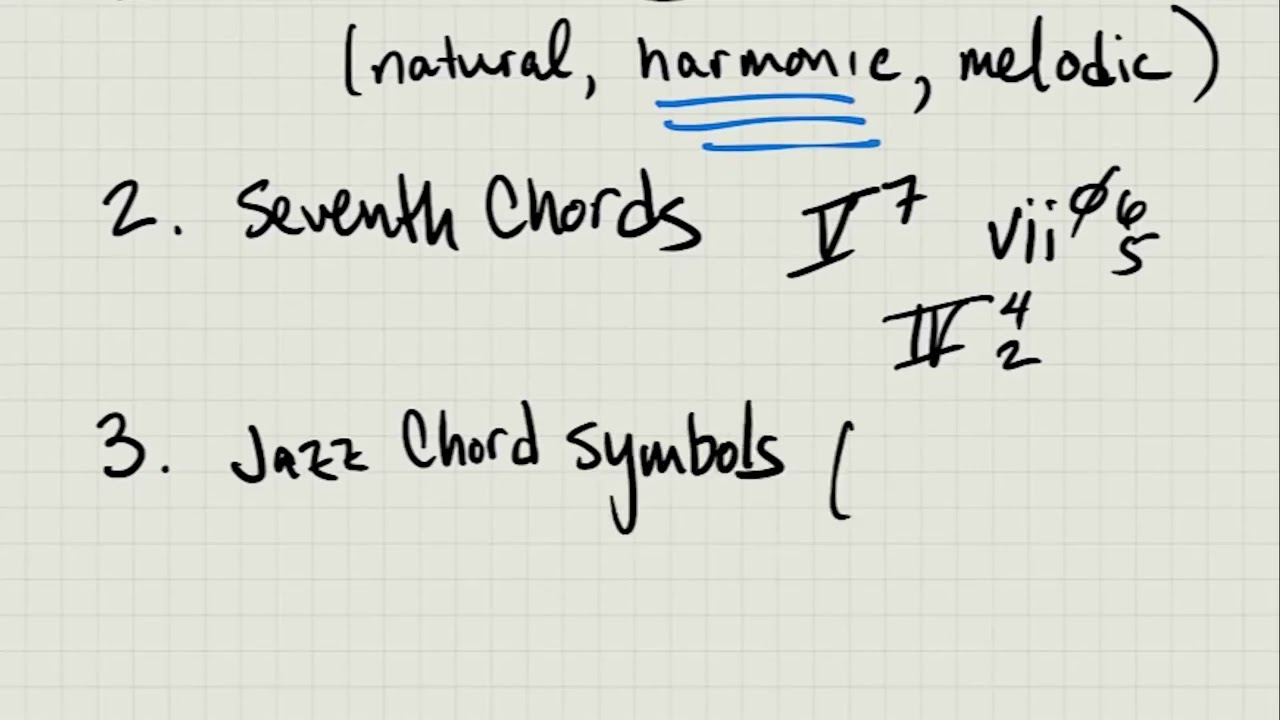 (natural, harmonic, melodic)
2. Seventh Chords V⁷ viiø⁶₅
IV⁴₂
3. Jazz Chord symbols (